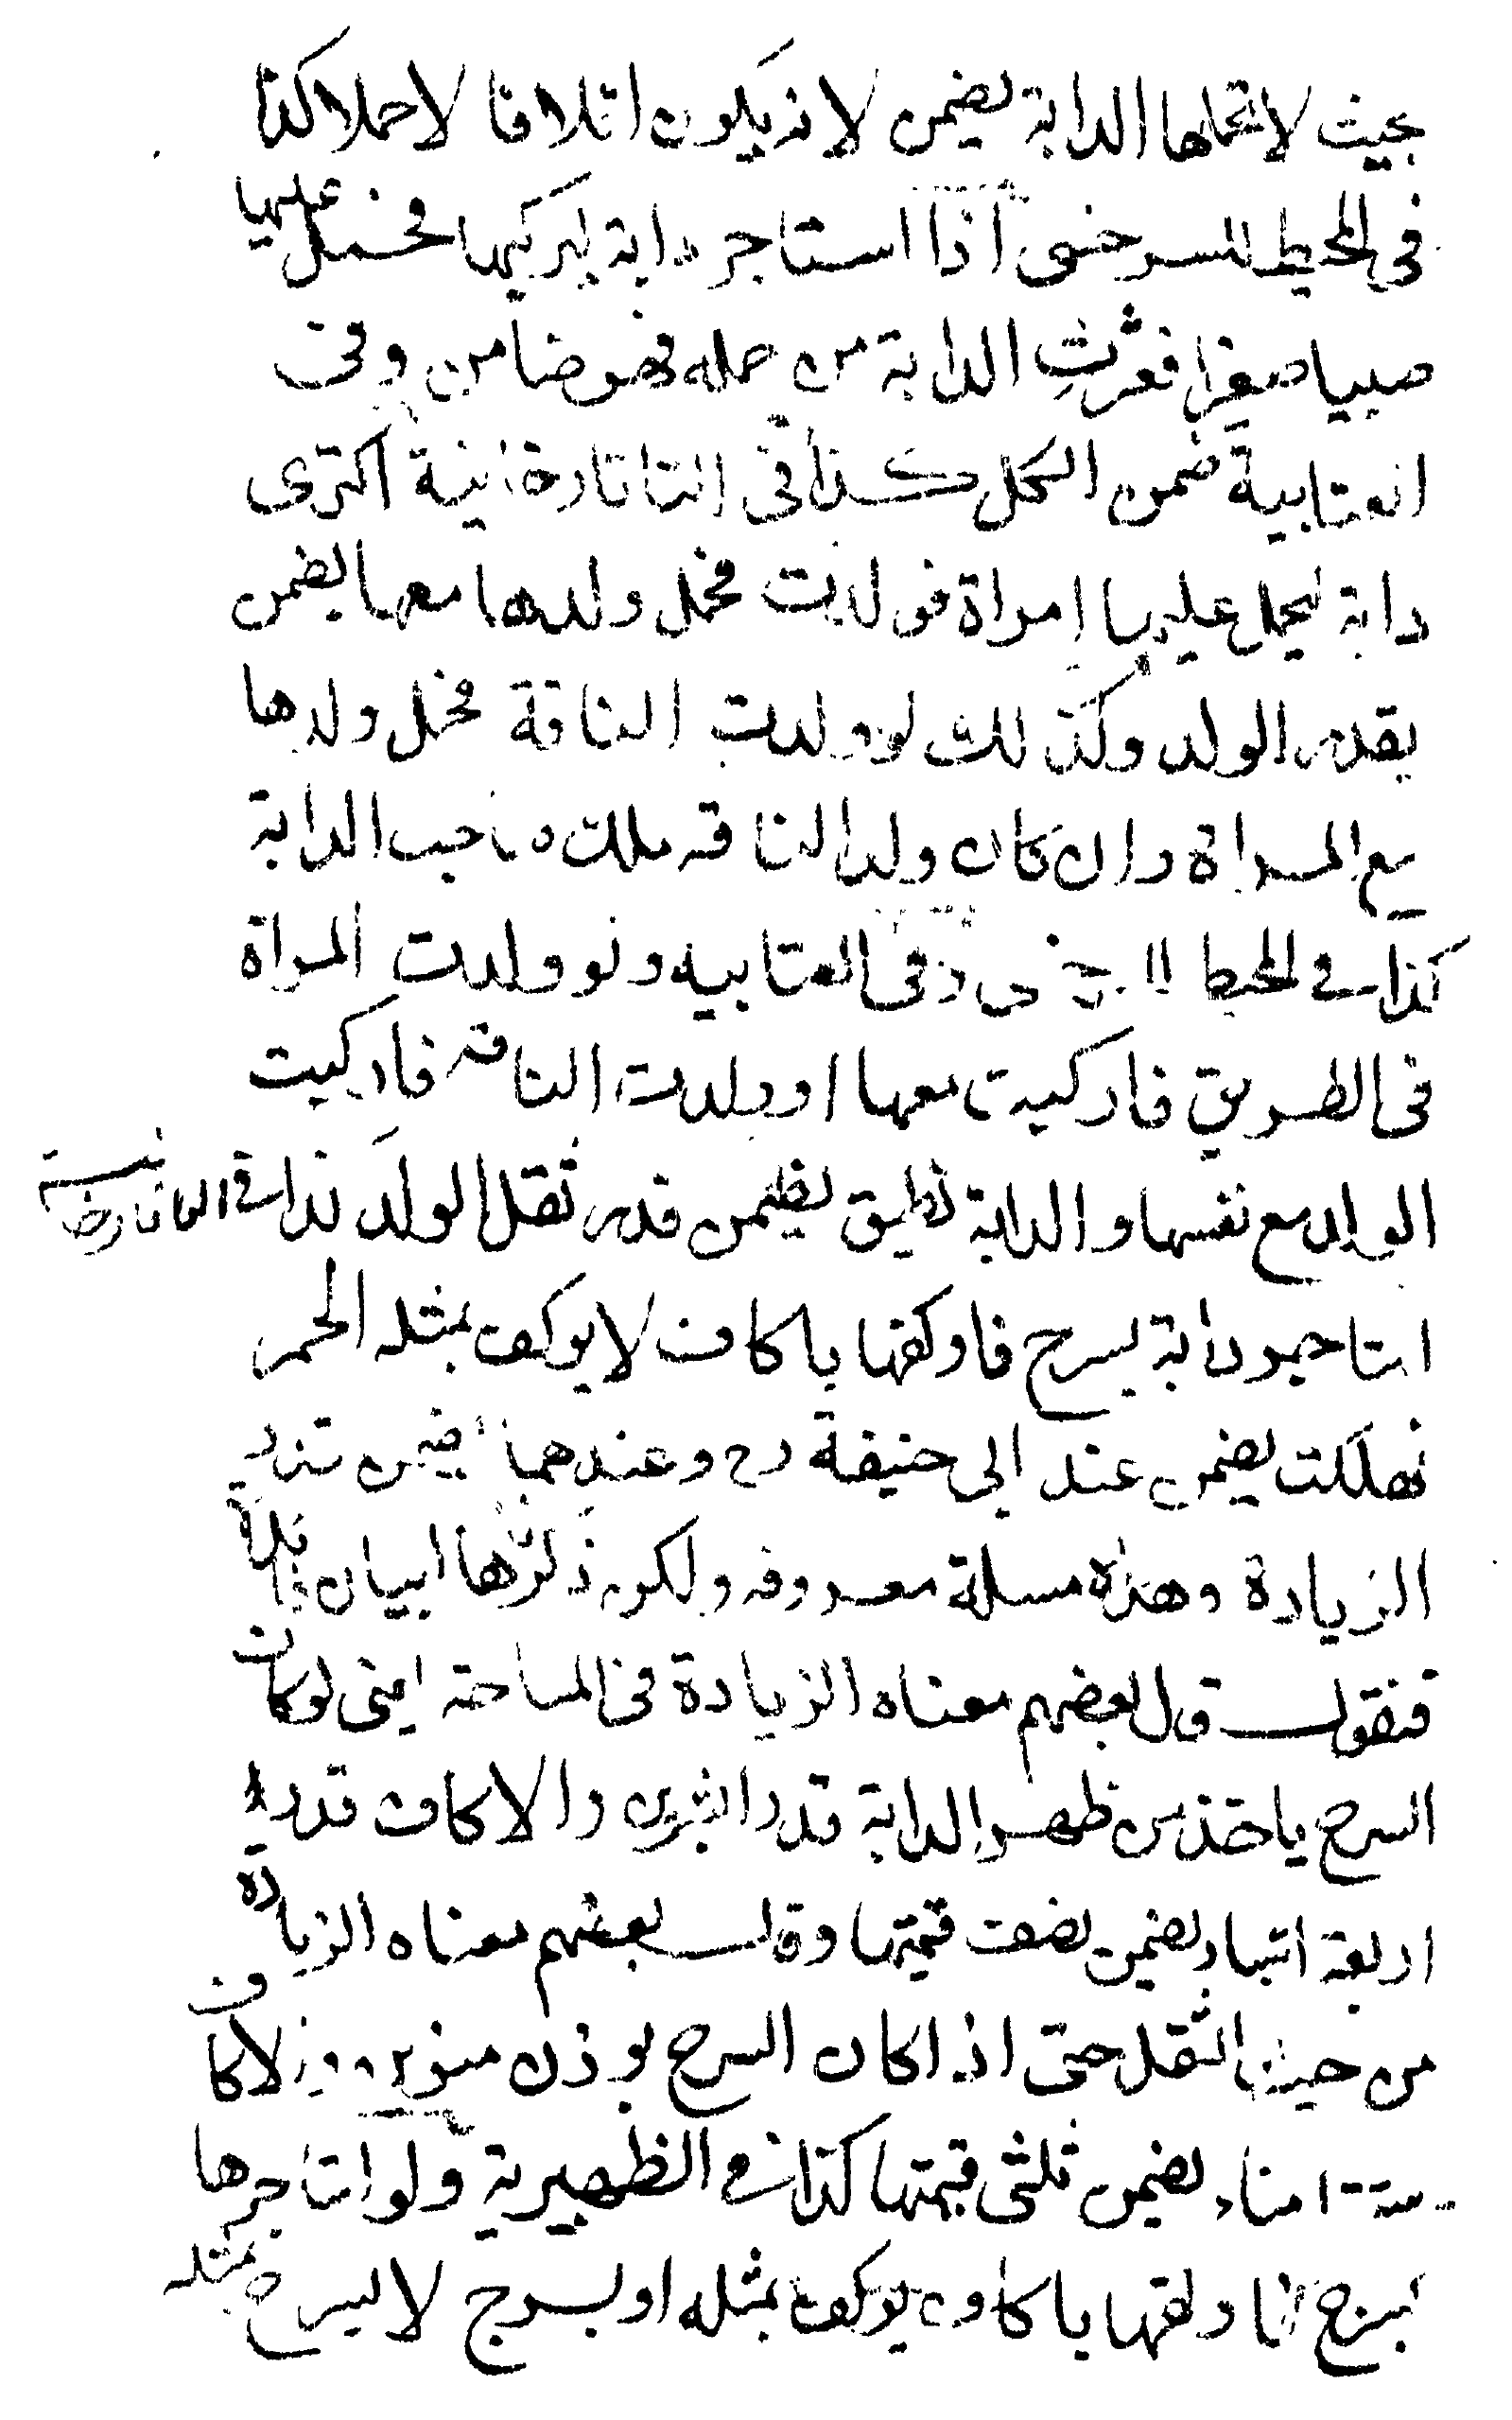 بحيث لا تحملها الدابة يضمن لانه يكون اتلافا لا حملا كذا
فى المحيط للسرخسى اذا استاجر دابة ليركبها فحمل عليها
صبيا صغيرا فعثرت الدابة من حمله فهو ضامن وفى
العتابية ضمن الكل كذا فى التاتارخانية اكترى
دابة ليحمل عليها امراة فولدت فحمل ولدها معها يضمن
بقدر الولد وكذلك لو ولدت الناقة فحمل ولدها
مع المراة وان كان ولد الناقه ملك صاحب الدابة
كذا فى المحيط السرخسى وفى العتابيه ولو ولدت المراة
فى الطريق فاركبت معها او ولدت الناقه فاركبت
الولد مع نفسها والدابة تطيق يضمن قدر ثقل الولد كذا فى التاتارخانية
استاجر دابة بسرج فاوكفها باكاف لا يوكف بمثله الحمر
فهلكت يضمن عند ابى حنيفة رح وعندهما يضمن بقدر
الزيادة وهذه مسلة معروفه ولكن ذكرها لبيان
فنقول قال بعضهم معناه الزيادة فى المساحة يعنى لو كان
السرج ياخذ من ظهر الدابة قدر شبرين والاكاف قدر
اربعة اشبار يضمن نصف قيمتها وقال بعضهم معناه الزيادة
من حيث الثقل حتى اذا كان السرج بوزن منوين والاكاف
ستة امناء يضمن ثلثى قيمتها كذا فى الظهيرية ولو استاجرها
بسرج فاوكفها باكاف يوكف بمثله او بسرج لا يسرج بمثله